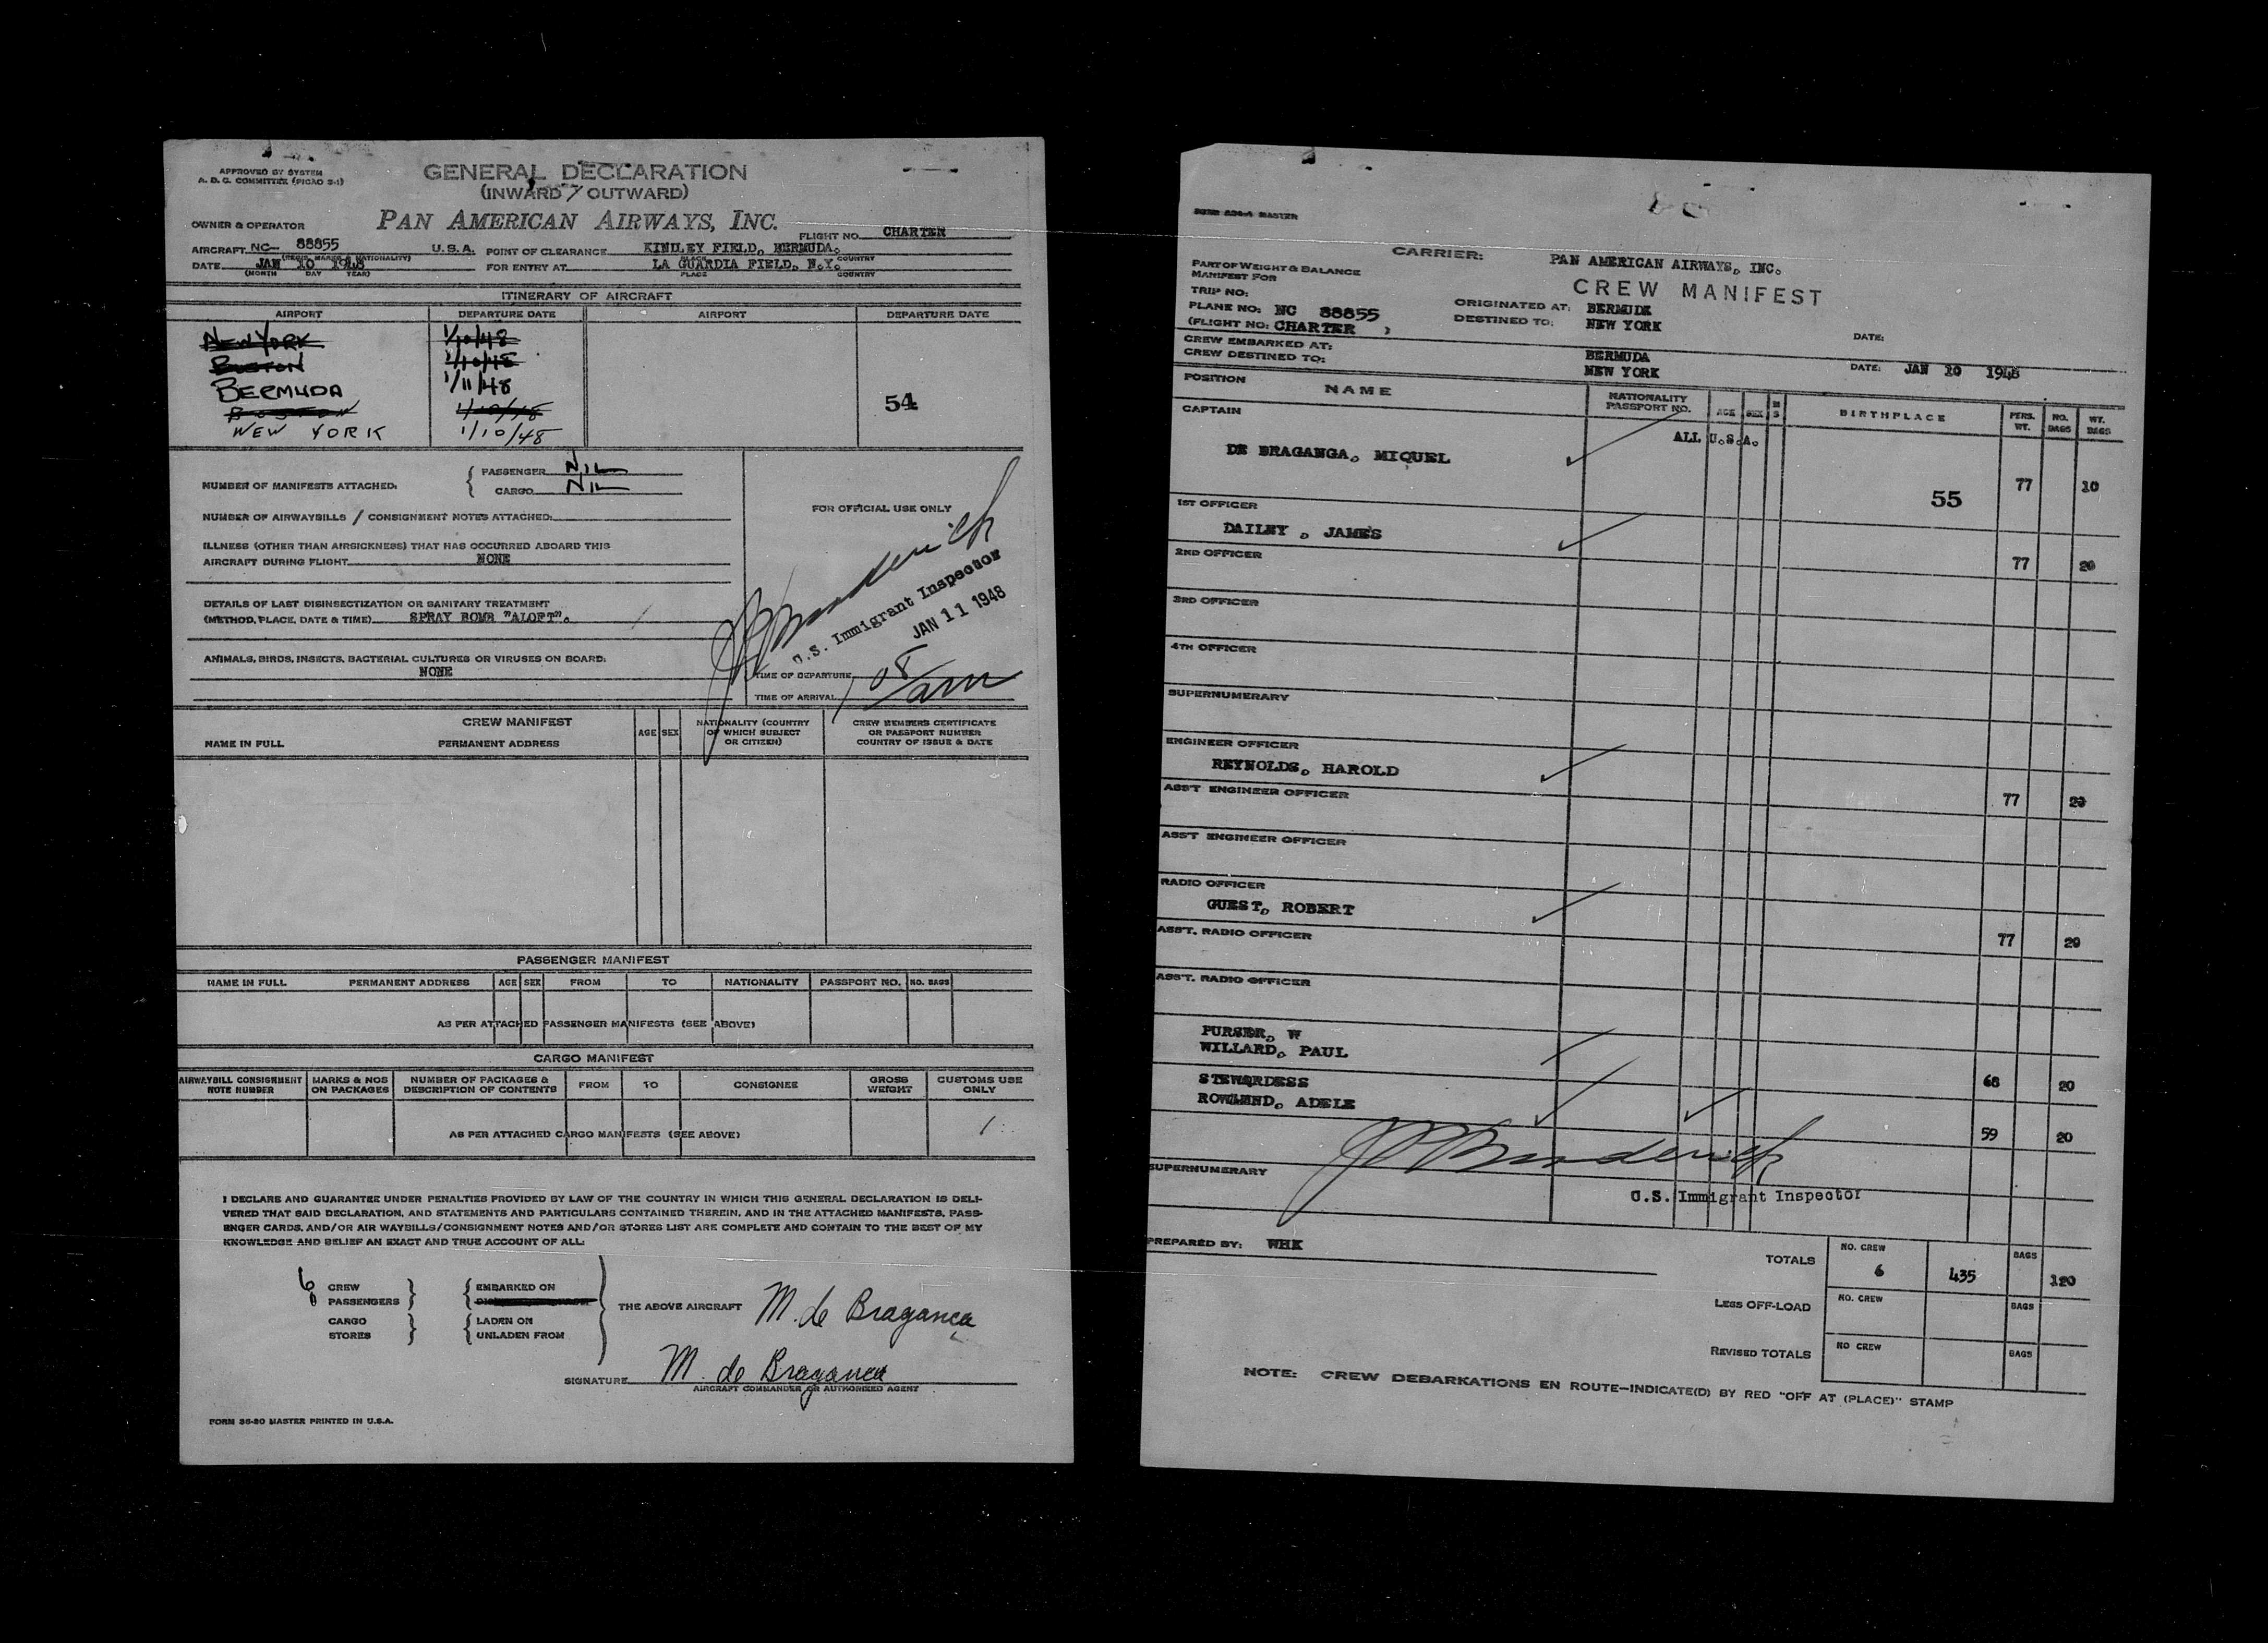 APPROVED BY SYSTEM
A. D. C. COMMITTEE (PICAO 2-1)
GENERAL DECLARATION
(INWARD / OUTWARD)
OWNER & OPERATOR PAN AMERICAN AIRWAYS, INC. FLIGHT NO. CHARTER
AIRCRAFT NC- 88855 U.S.A. POINT OF CLEARANCE KINDLEY FIELD, BERMUDA.
(REGIS. MARKS & NATIONALITY) PLACE COUNTRY
DATE JAN 10 1948 FOR ENTRY AT LA GUARDIA FIELD, N.Y.
(MONTH DAY YEAR) PLACE COUNTRY
ITINERARY OF AIRCRAFT
AIRPORT DEPARTURE DATE AIRPORT DEPARTURE DATE
NEW YORK 1/10/48
BOSTON 1/10/48
BERMUDA 1/11/48
54
BOSTON 1/10/48
NEW YORK 1/10/48
NUMBER OF MANIFESTS ATTACHED: PASSENGER NIL
CARGO NIL
FOR OFFICIAL USE ONLY
NUMBER OF AIRWAYBILLS / CONSIGNMENT NOTES ATTACHED:
ILLNESS (OTHER THAN AIRSICKNESS) THAT HAS OCCURRED ABOARD THIS
AIRCRAFT DURING FLIGHT NONE
DETAILS OF LAST DISINSECTIZATION OR SANITARY TREATMENT
(METHOD, PLACE, DATE & TIME) SPRAY BOMB "ALOFT".
U.S. Immigrant Inspector
JAN 11 1948
ANIMALS, BIRDS, INSECTS, BACTERIAL CULTURES OR VIRUSES ON BOARD:
NONE
TIME OF DEPARTURE
TIME OF ARRIVAL 108 am
CREW MANIFEST
NAME IN FULL PERMANENT ADDRESS AGE SEX NATIONALITY (COUNTRY OF WHICH SUBJECT OR CITIZEN) CREW MEMBERS CERTIFICATE OR PASSPORT NUMBER COUNTRY OF ISSUE & DATE
PASSENGER MANIFEST
NAME IN FULL PERMANENT ADDRESS AGE SEX FROM TO NATIONALITY PASSPORT NO. NO. BAGS
AS PER ATTACHED PASSENGER MANIFESTS (SEE ABOVE)
CARGO MANIFEST
AIRWAYBILL CONSIGNMENT NOTE NUMBER MARKS & NOS ON PACKAGES NUMBER OF PACKAGES & DESCRIPTION OF CONTENTS FROM TO CONSIGNEE GROSS WEIGHT CUSTOMS USE ONLY
AS PER ATTACHED CARGO MANIFESTS (SEE ABOVE)
I DECLARE AND GUARANTEE UNDER PENALTIES PROVIDED BY LAW OF THE COUNTRY IN WHICH THIS GENERAL DECLARATION IS DELI-
VERED THAT SAID DECLARATION, AND STATEMENTS AND PARTICULARS CONTAINED THEREIN, AND IN THE ATTACHED MANIFESTS, PASS-
ENGER CARDS, AND/OR AIR WAYBILLS/CONSIGNMENT NOTES AND/OR STORES LIST ARE COMPLETE AND CONTAIN TO THE BEST OF MY
KNOWLEDGE AND BELIEF AN EXACT AND TRUE ACCOUNT OF ALL:
6 CREW EMBARKED ON
0 PASSENGERS
THE ABOVE AIRCRAFT M. de Bragança
CARGO LADEN ON
STORES UNLADEN FROM
SIGNATURE M. de Bragança
AIRCRAFT COMMANDER OR AUTHORIZED AGENT
FORM 36-80 MASTER PRINTED IN U.S.A.
MASTER
CARRIER: PAN AMERICAN AIRWAYS, INC.
PART OF WEIGHT & BALANCE
MANIFEST FOR
CREW MANIFEST
TRIP NO:
PLANE NO: NC 88855 ORIGINATED AT: BERMUDA
(FLIGHT NO: CHARTER ) DESTINED TO: NEW YORK DATE:
CREW EMBARKED AT: BERMUDA
CREW DESTINED TO: NEW YORK DATE: JAN 10 1948
POSITION NAME NATIONALITY PASSPORT NO. AGE SEX M S BIRTHPLACE PERS. WT. NO. BAGS WT. BAGS
CAPTAIN ALL U.S.A.
DE BRAGANGA, MIQUEL 55 77 10
1ST OFFICER
DAILEY , JAMES
2ND OFFICER 77 20
3RD OFFICER
4TH OFFICER
SUPERNUMERARY
ENGINEER OFFICER
REYNOLDS, HAROLD
ASS'T ENGINEER OFFICER 77 20
ASS'T ENGINEER OFFICER
RADIO OFFICER
GUEST, ROBERT
ASS'T. RADIO OFFICER 77 20
ASS'T. RADIO OFFICER
PURSER, W
WILLARD, PAUL
STEWARDESS 68 20
ROWLEND, ADELE
59 20
SUPERNUMERARY
U.S. Immigrant Inspector
PREPARED BY: WHK
TOTALS NO. CREW 6 435 BAGS 120
LEGS OFF-LOAD NO. CREW BAGS
REVISED TOTALS NO CREW BAGS
NOTE: CREW DEBARKATIONS EN ROUTE-INDICATE(D) BY RED "OFF AT (PLACE)" STAMP